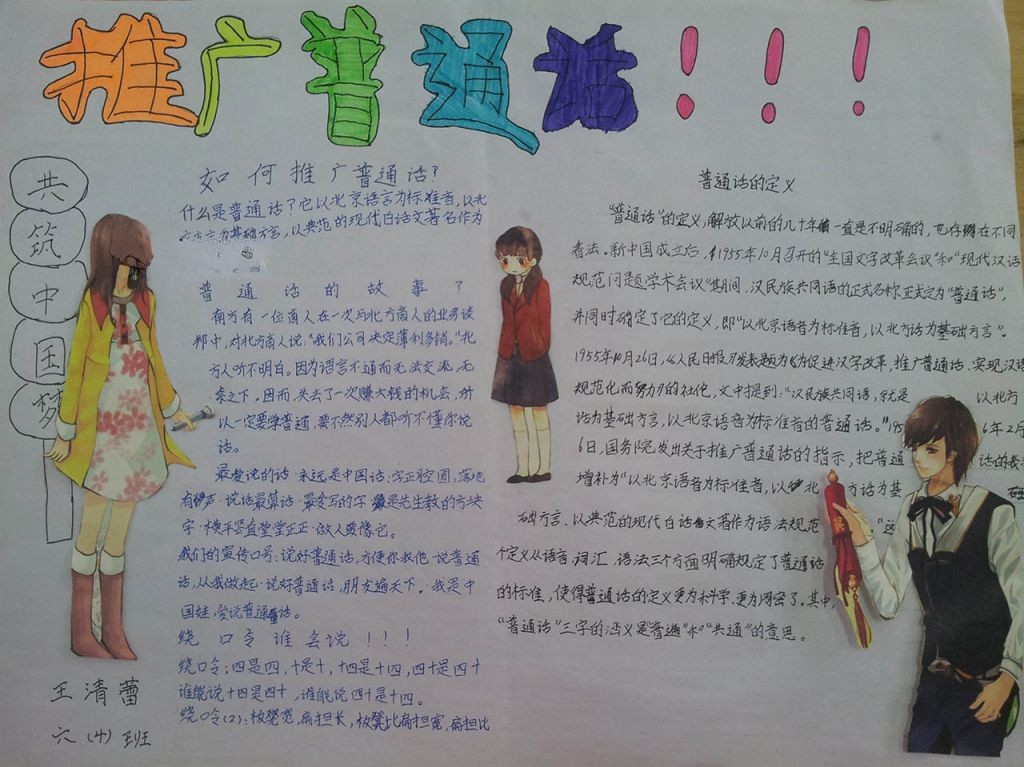 推广普通话!!!
共筑中国梦
如何推广普通话?
什么是普通话?它以北京语言为标准音,以北
方言为基础方言,以典范的现代白话文著名作为
普通话的故事?
南方有一位商人在一次与北方商人的业务谈
判中,对北方商人说:“我们公司决定薄利多销。”北
方人听不明白。因为语言不通而无法交流,无
奈之下,因而,失去了一次赚大钱的机会,所
以一定要学普通,要不然别人都听不懂你说
话。
最爱说的话·永远是中国话·字正腔圆,落地
有声·说话最算话·最爱写的字·最是先生教的方块
字·横平竖直堂堂正正·做人要像它。
我们的宣传口号:说好普通话,方便你我他·说普通
话,从我做起·说好普通话,朋友遍天下。我是中
国娃,爱说普通话。
绕口令谁会说!!!
绕口令:四是四,十是十,十四是十四,四十是四十
谁能说十四是四十,谁能说四十是十四。
绕口令(2):板凳宽,扁担长,板凳比扁担宽,扁担比
王清蕾
六(4)班
普通话的定义
“普通话”的定义,解放以前的几十年一直是不明确的,也存在不同
看法。新中国成立后,1955年10月召开的“全国文字改革会议”和“现代汉语
规范问题学术会议”期间,汉民族共同语的正式名称正式定为“普通话”,
并同时确定了它的定义,即“以北京语音为标准音,以北方话为基础方言”。
1955年10月26日,《人民日报》发表题为《为促进汉字改革,推广普通话,实现汉语
规范化而努力》的社论,文中提到:“汉民族共同语,就是以北方
话为基础方言,以北京语音为标准音的普通话。”195 6年2月
6日,国务院发出关于推广普通话的指示,把普通 话的
增补为“以北京语音为标准音,以北 方话为基
础方言,以典范的现代白话文著作为语法规范”,“这
个定义从语音,词汇,语法三个方面明确规定了普通话
的标准,使得普通话的定义更为科学,更为周密了。其中,
“普通话”三字的涵义是“普遍”和“共通”的意思。